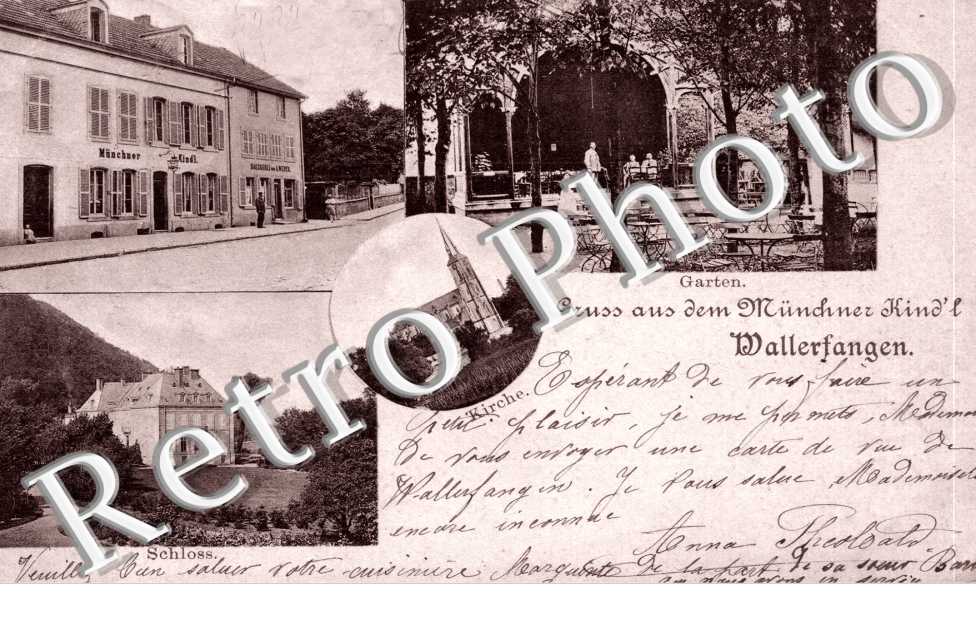 Münchner Kindl.
Garten.
Gruss aus dem Münchner Kind'l
Wallerfangen.
Kirche.
Schloss.
Espérant de vous faire un
petit plaisir, je me permets, Mademoi
de vous envoyer une carte de vue de
Wallerfangen. Je vous salue Mademoise
encore inconnue
Anna Theobald.
Veuillez bien saluer votre cuisinière Marguerite de la part de sa soeur Bar
en service
Retro Photo